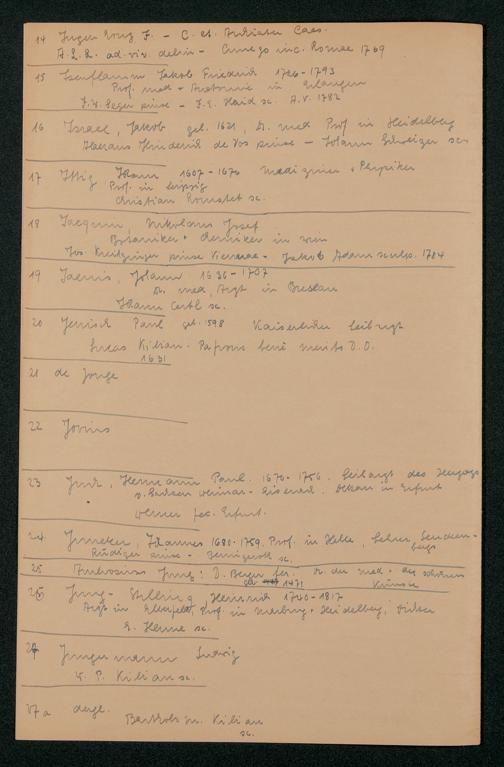 14 Ingen Housz J. - C. et Archiater Caes.
A. L. R. ad viv. delin - Cunego inc. Romae 1769
15 Isenflamm Jakob Friedrich 1726-1793
Prof. med - Anatomie in Erlangen
pinx - J. E. Haid sc. A. V. 1782
16 Israel, Jakob geb. 1621, Dr. med Prof in Heidelberg
Hendrik de Vos pinx - Johann Schweizer sc
17 Ittig Johann 1607-1676 Mediziner + Physiker
Prof. in Leipzig
Christian Romstet sc.
18 Jacquin, Nikolaus Josef
Botaniker + Chemiker in Wien
Jos. Kreutzinger pinx Viennae - Jakob Adam sculp. 1784
19 Jaenis, Johann 1636-1707
Dr. med, Arzt in Breslau
Johann sc.
20 Jenisch Paul geb. 1598 Kaiserlicher Leibarzt
Lucas Kilian. Patrono bene merito D. D.
1631
21 de Jonge
22 Jovius
23 Juch, Hermann Paul. 1676-1756. Leibarzt des Herzogs
v. Sachsen Weimar - Eisenach. Dekan in Erfurt
Werner fec. Erfurt.
24 Juncker, Johannes 1680-1759. Prof. in Halle, Lehrer,
Rüdiger pinx - sc.
25 Ambrosius Jung: D. Beyer fec. Dr. der med + der schönen
1471 Künste
26 Jung-Stilling, Heinrich 1740-1817
Arzt in Elberfeld, Prof. in Marburg + Heidelberg,
E. Henne sc.
27 Jungermann Ludwig
P. Kilian sc.
27a dergl.
Bartholom. Kilian
sc.